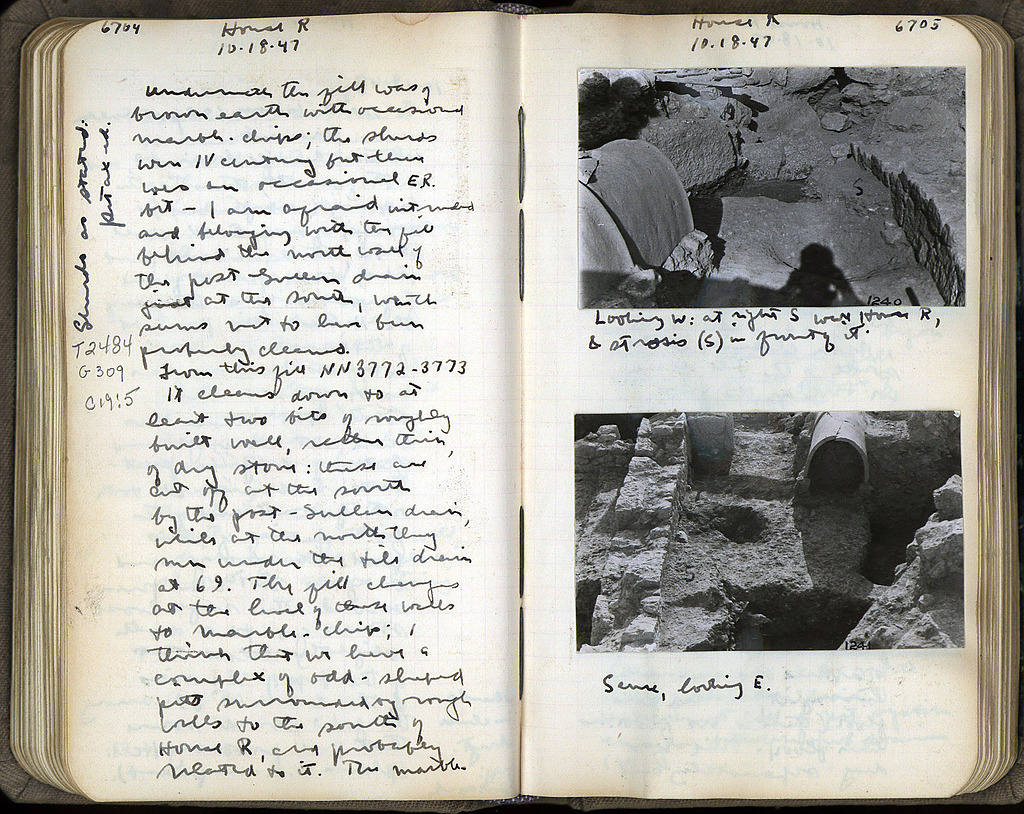 6704
House R
10.18.47
underneath the fill was of
brown earth with occasional
marble-chips; the sherds
were IV century but there
was an occasional E.R.
bit – I am afraid intruded
and belonging with the fill
behind the north wall of
the post-Sullan drain
just at the south, which
seems not to have been
properly cleaned.
From this fill NN3772-3773
It cleans down to at
least two bits of roughly
built wall, rather thin,
of dry stone: these are
cut off at the south
by the post-Sullan drain,
while at the north they
run under the tile drain
at 69. The fill changes
at the level of these walls
to marble-chip; I
think that we have a
complex of odd-shaped
pits surrounded by rough
walls to the south of
House R, and probably
related to it. The marble-
Sherds as stated.
T2484
G 309
C 19:5
House R
10.18.47
6705
S
1240
Looking W: at right S wall House R,
& stosis (S) in front of it.
S
1241
Same, looking E.